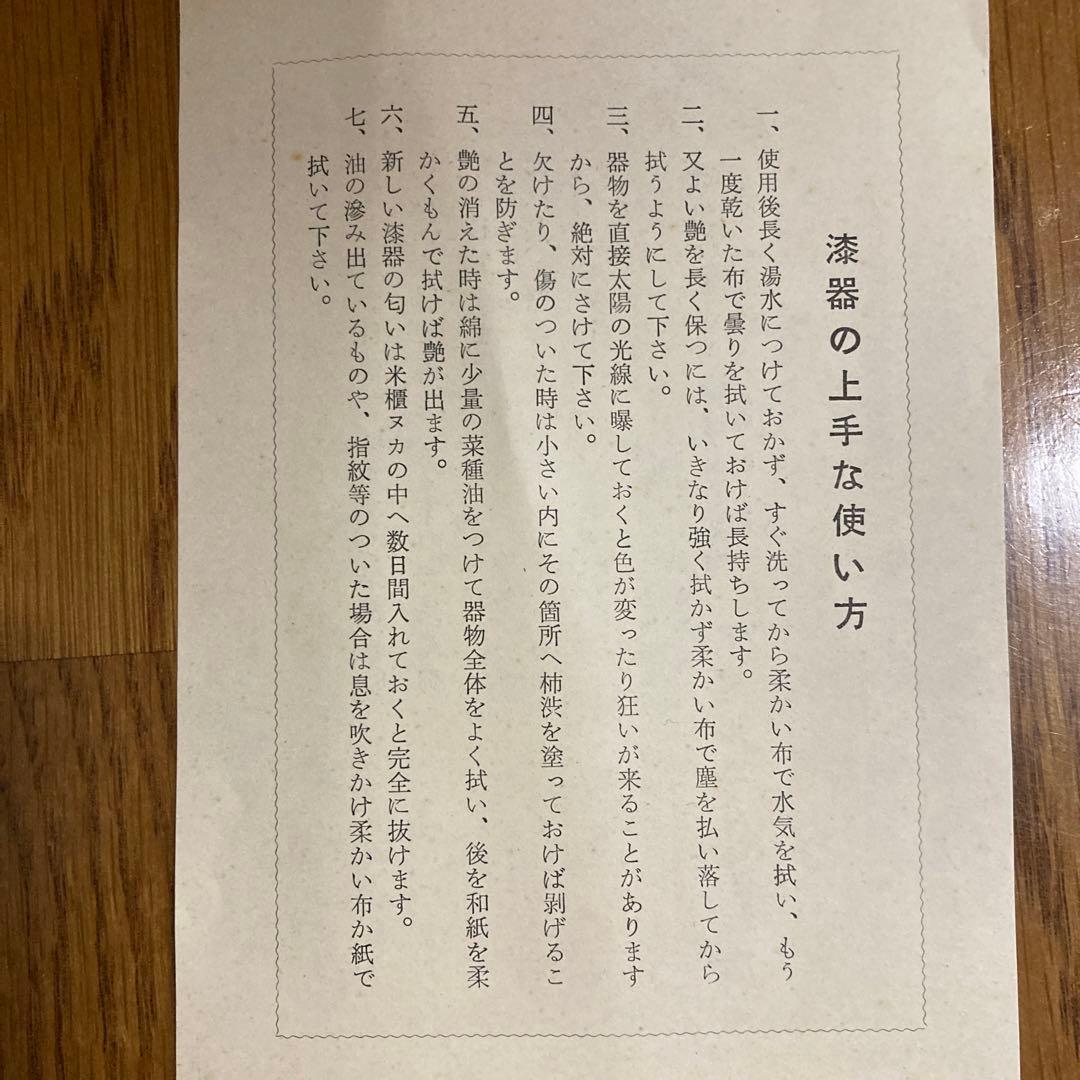 漆器の上手な使い方
一、使用後長く湯水につけておかず、すぐ洗ってから柔かい布で水気を拭い、もう
一度乾いた布で曇りを拭いておけば長持ちします。
二、又よい艶を長く保つには、いきなり強く拭かず柔かい布で塵を払い落してから
拭うようにして下さい。
三、器物を直接太陽の光線に曝しておくと色が変ったり狂いが来ることがあります
から、絶対にさけて下さい。
四、欠けたり、傷のついた時は小さい内にその箇所へ柿渋を塗っておけば剝げるこ
とを防ぎます。
五、艶の消えた時は綿に少量の菜種油をつけて器物全体をよく拭い、後を和紙を柔
かくもんで拭けば艶が出ます。
六、新しい漆器の匂いは米櫃ヌカの中へ数日間入れておくと完全に抜けます。
七、油の滲み出ているものや、指紋等のついた場合は息を吹きかけ柔かい布か紙で
拭いて下さい。